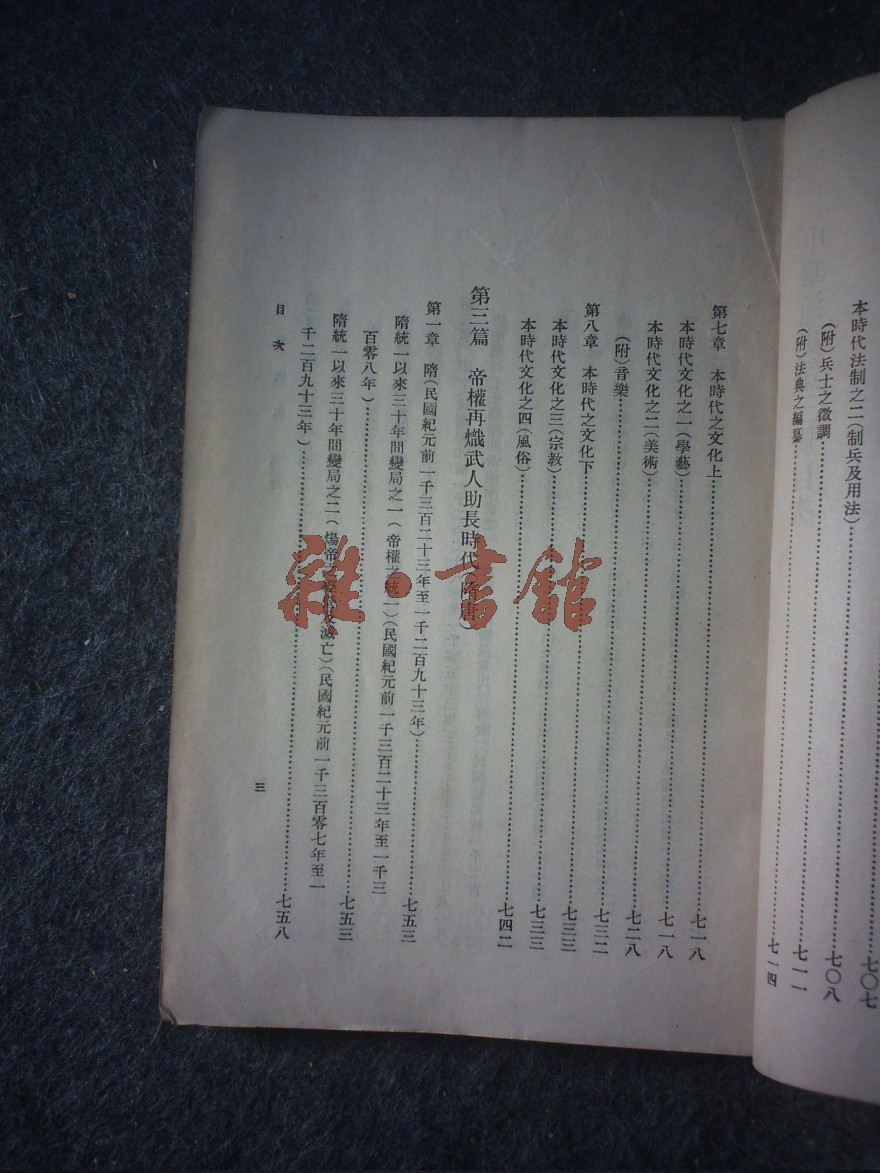 七〇七
本時代法制之二(制兵及用法)……七〇八
(附)兵士之徵調……七一一
(附)法典之編纂……七一四
第七章 本時代之文化上……七一八
本時代文化之一(學藝)……七一八
本時代文化之二(美術)……七二八
(附)音樂……七三二
第八章 本時代之文化下……七三三
本時代文化之三(宗教)……七三三
本時代文化之四(風俗)……七四二
第三篇 帝權再熾武人助長時代(隋唐)
第一章 隋(民國紀元前一千三百二十三年至一千二百九十三年)……七五三
隋統一以來三十年間變局之一(帝權之統一)(民國紀元前一千三百二十三年至一千三
百零八年)……七五三
隋統一以來三十年間變局之二(煬帝滅亡)(民國紀元前一千三百零七年至一
千二百九十三年)……七五八
目次
三
雜·書館